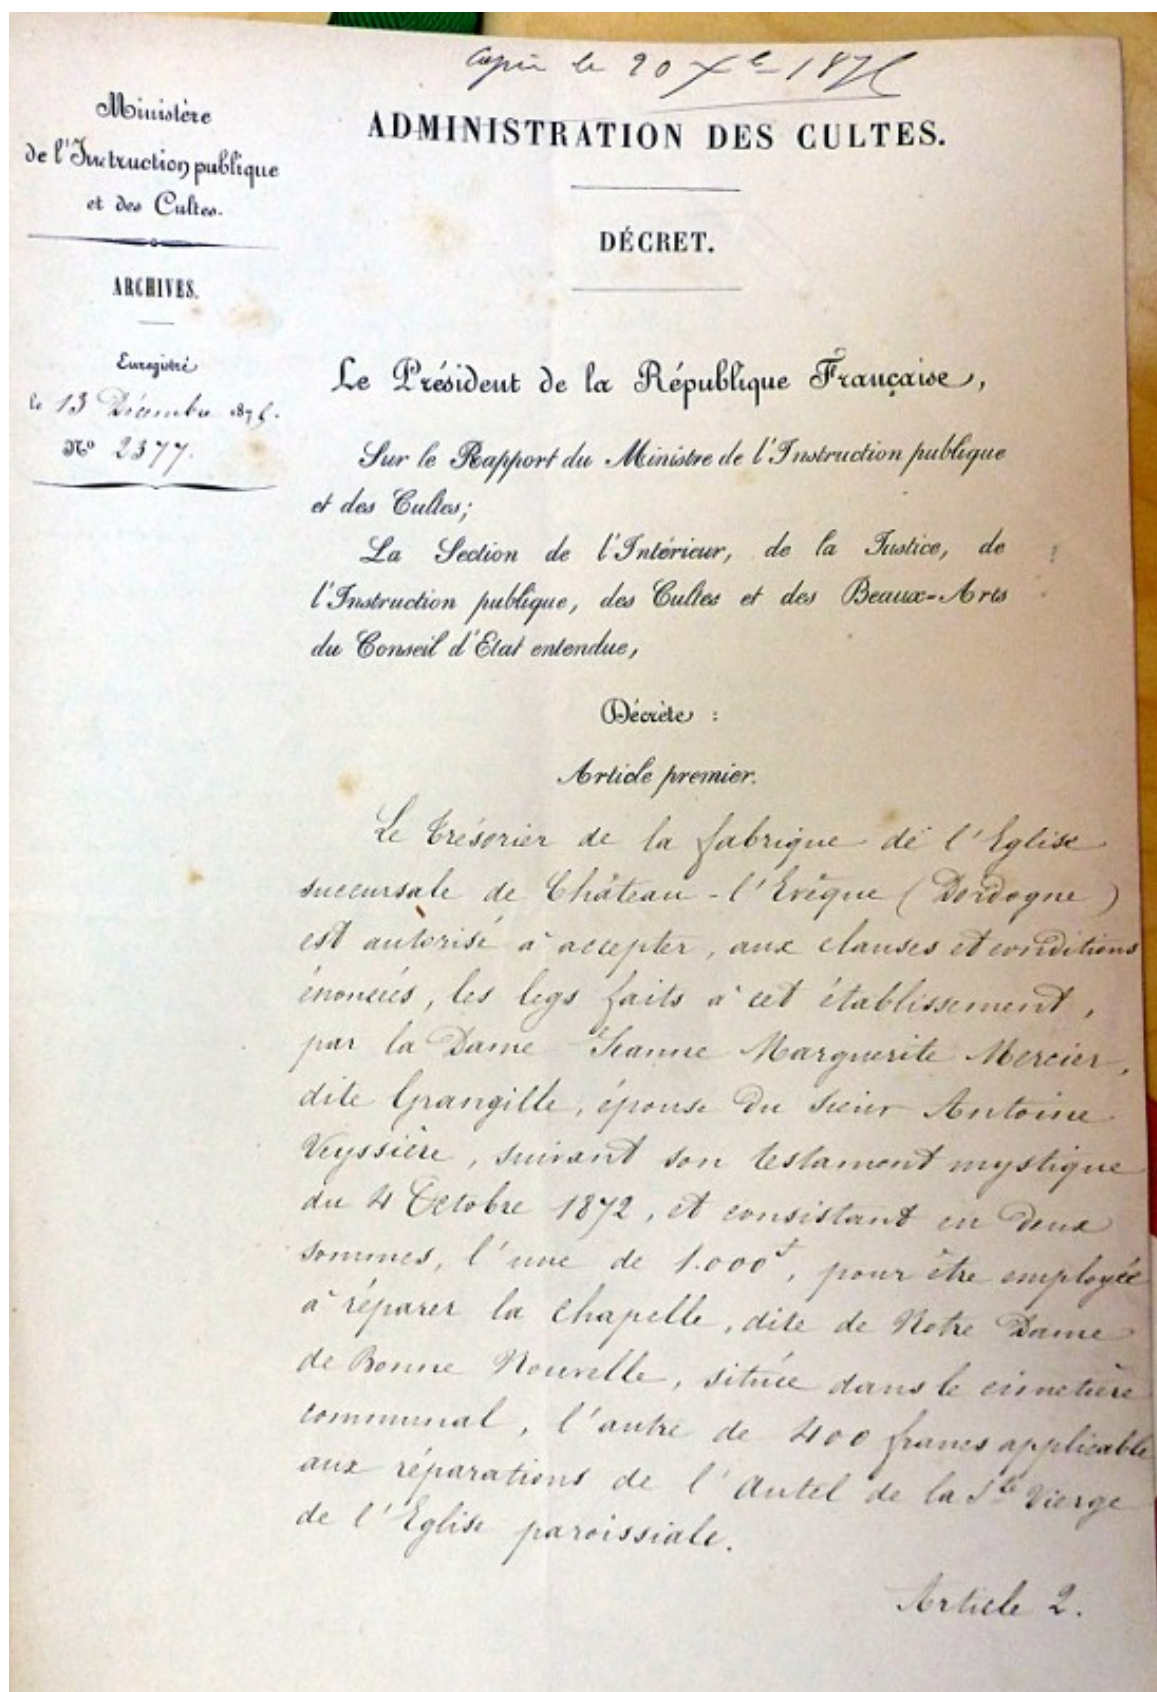 le 20 Xbre 1875
Ministère
de l'Instruction publique
et des Cultes.
ARCHIVES.
Enregistré
le 13 Décembre 1875.
No 2377.
ADMINISTRATION DES CULTES.
DÉCRET.
Le Président de la République Française,
Sur le Rapport du Ministre de l'Instruction publique
et des Cultes;
La Section de l'Intérieur, de la Justice, de
l'Instruction publique, des Cultes et des Beaux-Arts
du Conseil d'Etat entendue,
Décrète :
Article premier.
Le trésorier de la fabrique de l'Eglise
succursale de Château-l'Evêque (Dordogne)
est autorisé à accepter, aux clauses et conditions
énoncées, les legs faits à cet établissement,
par la Dame Jeanne Marguerite Mercier,
dite Grangille, épouse du sieur Antoine
Veyssière, suivant son testament mystique
du 4 Octobre 1872, et consistant en deux
sommes, l'une de 1.000f, pour être employée
à réparer la chapelle, dite de Notre Dame
de Bonne Nouvelle, située dans le cimetière
communal, l'autre de 400 francs applicable
aux réparations de l'Autel de la Ste Vierge
de l'Eglise paroissiale.
Article 2.